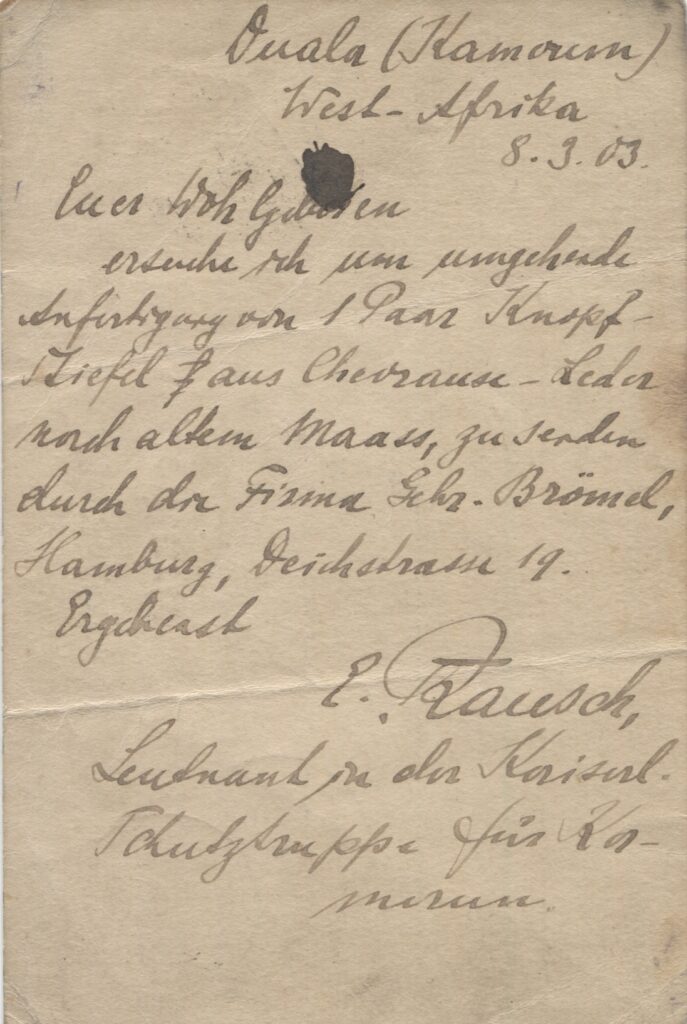 Duala (Kamerun)
West-Afrika
8. 3. 03.
Euer Wohlgeboren
ersuche ich um umgehende
Anfertigung von 1 Paar Knopf-
Stiefel aus Chevrause-Leder
nach altem Maass, zu senden
durch die Firma Gebr. Brömel,
Hamburg, Deichstrasse 19.
Ergebenst
E. Rausch,
Leutnant in der Kaiserl.
Schutztruppe für Ka-
merun.